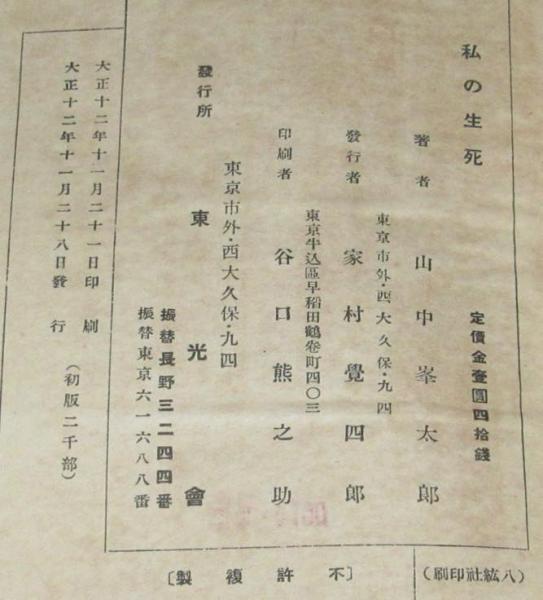 私の生死
定價金壹圓四拾錢
著者 山中峯太郎
東京市外・西大久保・九四
發行者 家村覺四郎
東京牛込區早稻田鶴卷町四〇三
印刷者 谷口熊之助
東京市外・西大久保・九四
發行所 東光會
振替長野三二四四番
振替東京六一六八八番
大正十二年十一月二十一日印刷
大正十二年十一月二十八日發行
(初版二千部)
〔不許複製〕
(八紘社印刷)